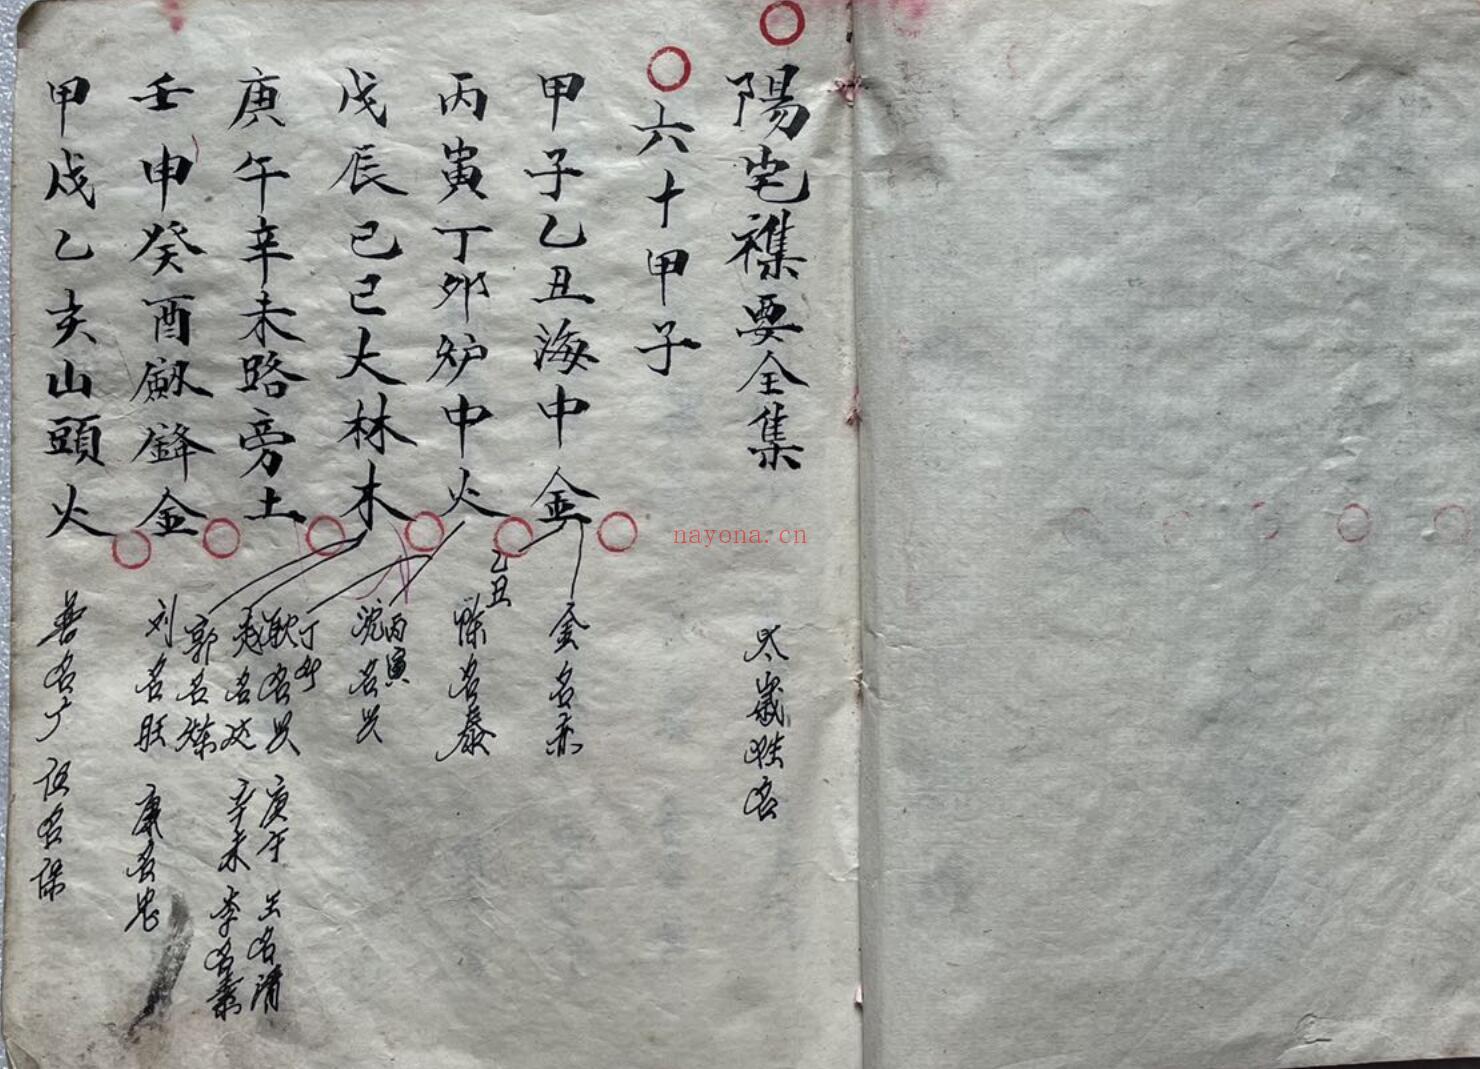 陽宅襍要全集
六十甲子
甲子乙丑海中金
丙寅丁卯炉中火
戊辰己巳大林木
庚午辛未路旁土
壬申癸酉劔鋒金
甲戌乙亥山頭火
太歲姓名
金名赤
乙丑
陈名泰
丙寅
沈名兴
丁卯
耿名兴
赵名达
郭名灿
庚午
王名清
辛未
李名素
刘名旺
康名忠
名广
伍名保
nayona.cn